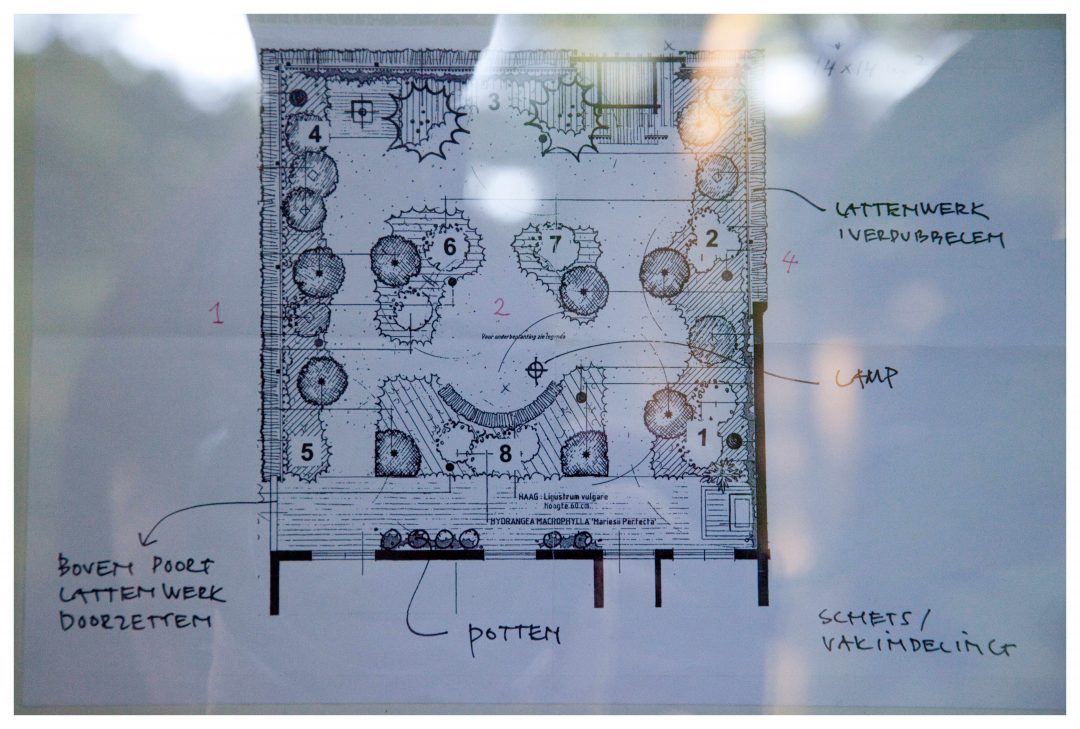 14x14
3
4
LATTENWERK
VERDUBBELEN
6
7
2
4
1
2
Voor onderbeplanting zie legenda
LAMP
1
5
8
HAAG : Ligustrum vulgare
hoogte 60 cm.
HYDRANGEA MACROPHYLLA 'Mariesii Perfecta'
BOVEN POORT
LATTENWERK
DOORZETTEN
POTTEN
SCHETS/
VAKINDELING